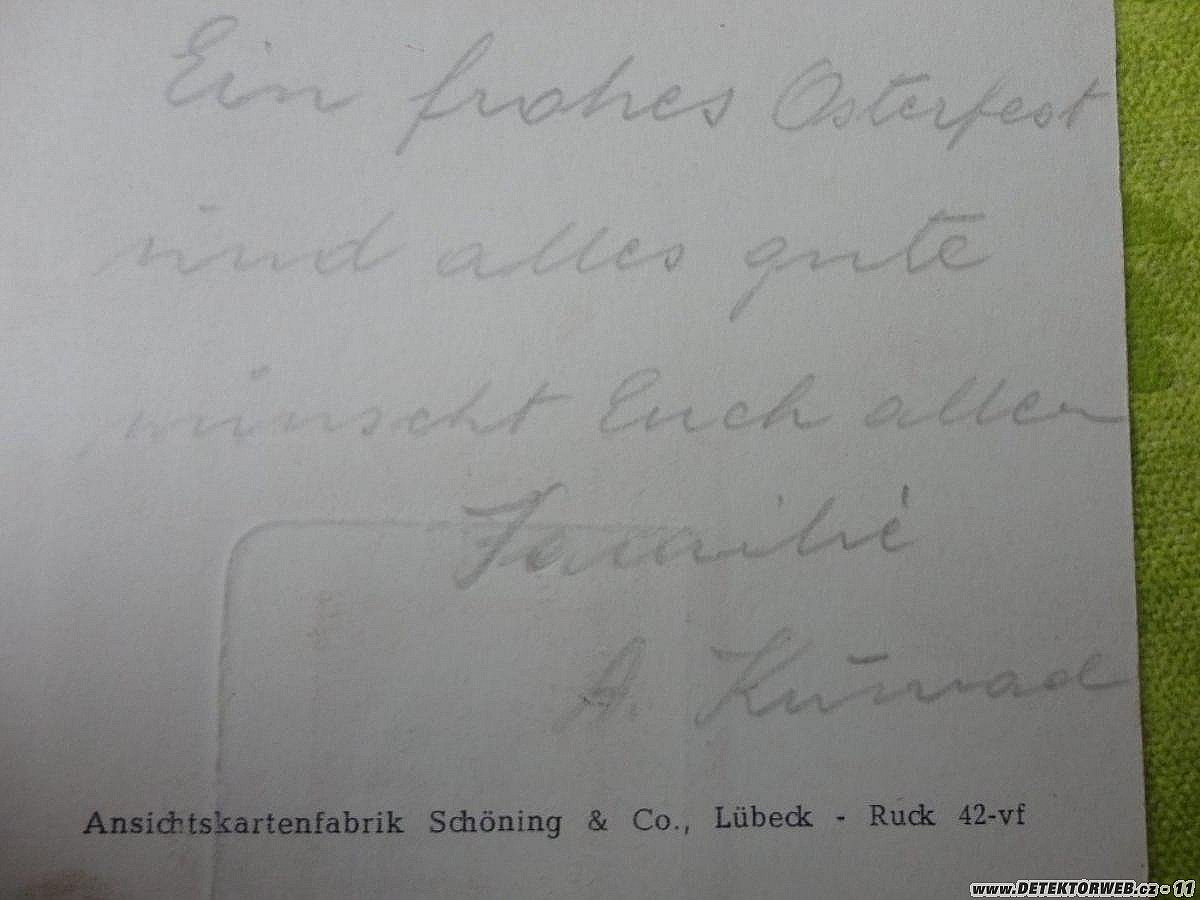 Ein frohes Osterfest
und alles gute
wünscht Euch allen
Familie
A. Kunrad
Ansichtskartenfabrik Schöning & Co., Lübeck - Ruck 42-vf
www.DETEKTORWEB.cz - 11